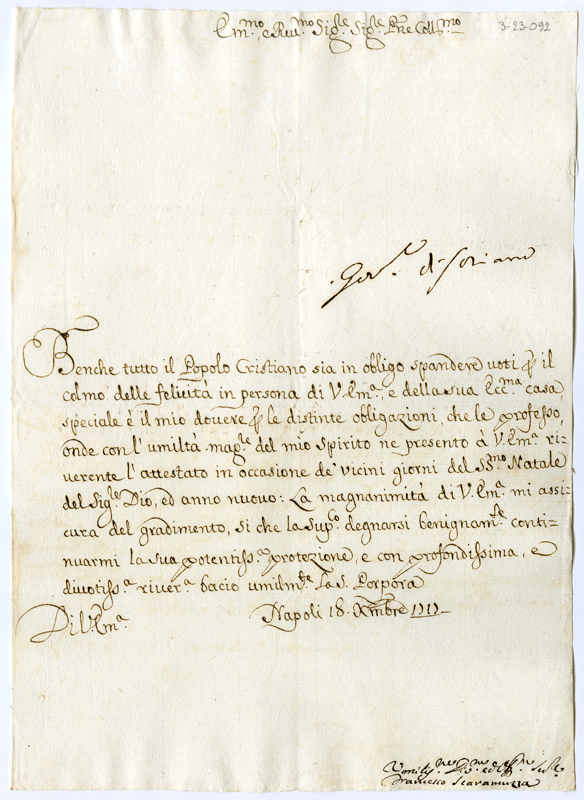 Em.mo, e Reu.mo Sig.re Sig.re P.ne Coll.mo
3-23-092
Gov.re di Soriano
Benche tutto il Popolo Cristiano sia in obligo spandere voti p il
colmo delle felicità in persona di V. Em.a, e della sua Ecc.ma casa,
speciale è il mio douere p le distinte obligazioni, che le professo,
onde con l'umiltà mag.re del mio spirito ne presento à V. Em.a ri-
uerente l'attestato in occasione de' vicini giorni del SS.mo Natale
del Sig.re Dio, ed anno nuouo: La magnanimità di V. Em.a mi assi-
cura del gradimento, si che la sup.co degnarsi benignam.te conti-
nuarmi la sua potentiss.a protezione, e con profondissima, e
diuotiss.a riuer.a bacio umilm.te La S. Porpora
Di V. Em.a Napoli 18. Xmbre 1717-
Vmilis.mo Diu.mo ed
Francesco Scaramuzza